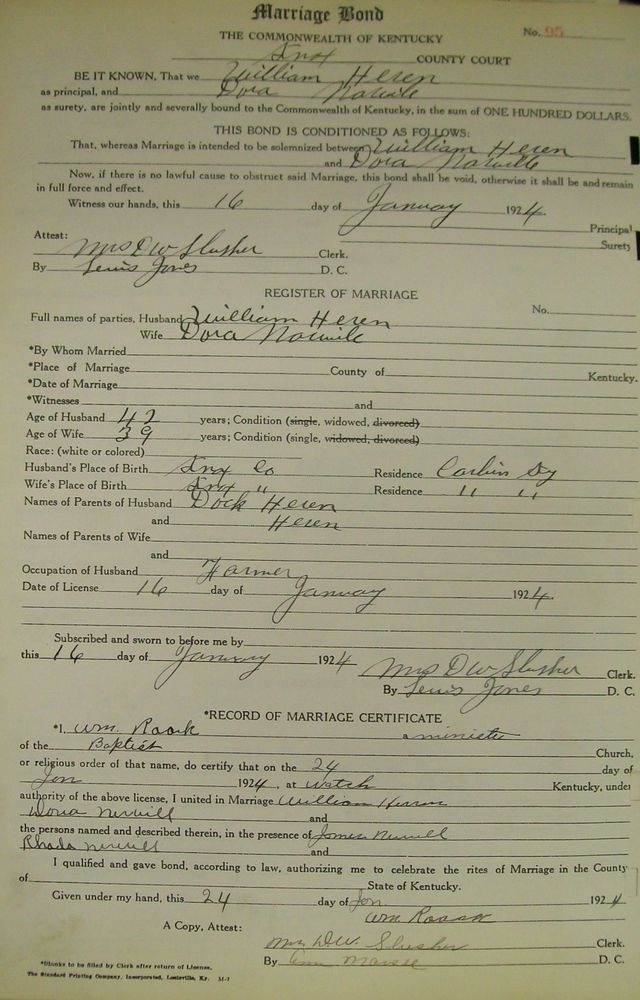 Marriage Bond
THE COMMONWEALTH OF KENTUCKY No. 95
Knox COUNTY COURT
BE IT KNOWN, That we William Heren
as principal, and Dora
as surety, are jointly and severally bound to the Commonwealth of Kentucky, in the sum of ONE HUNDRED DOLLARS.
THIS BOND IS CONDITIONED AS FOLLOWS:
That, whereas Marriage is intended to be solemnized between William Heren
and Dora
Now, if there is no lawful cause to obstruct said Marriage, this bond shall be void, otherwise it shall be and remain
in full force and effect.
Witness our hands, this 16 day of January 1924.
Principal
Surety
Attest:
Mrs D W Slusher Clerk.
By Lewis Jones D. C.
REGISTER OF MARRIAGE
No.
Full names of parties, Husband William Heren
Wife Dora
*By Whom Married
*Place of Marriage County of Kentucky.
*Date of Marriage
*Witnesses and
Age of Husband 42 years; Condition (single, widowed, divorced)
Age of Wife 39 years; Condition (single, widowed, divorced)
Race: (white or colored)
Husband's Place of Birth Knox Co Residence Corbin Ky
Wife's Place of Birth Knox " Residence " "
Names of Parents of Husband Dock Heren
and Heren
Names of Parents of Wife
and
Occupation of Husband Farmer
Date of License 16 day of January 1924.
Subscribed and sworn to before me by
this 16 day of January 1924 Mrs D W Slusher Clerk.
By Lewis Jones D. C.
*RECORD OF MARRIAGE CERTIFICATE
*I, Wm. a minister
of the Baptist Church,
or religious order of that name, do certify that on the 24 day of
Jan 1924, at Kentucky, under
authority of the above license, I united in Marriage William Herron
and
the persons named and described therein, in the presence of James
Rhoda and
I qualified and gave bond, according to law, authorizing me to celebrate the rites of Marriage in the County
of State of Kentucky.
Given under my hand, this 24 day of Jan 1924
Wm
A Copy, Attest:
Mrs D W. Slusher Clerk.
By D. C.
*Blanks to be filled by Clerk after return of License.
The Standard Printing Company, Incorporated, Louisville, Ky. M-7